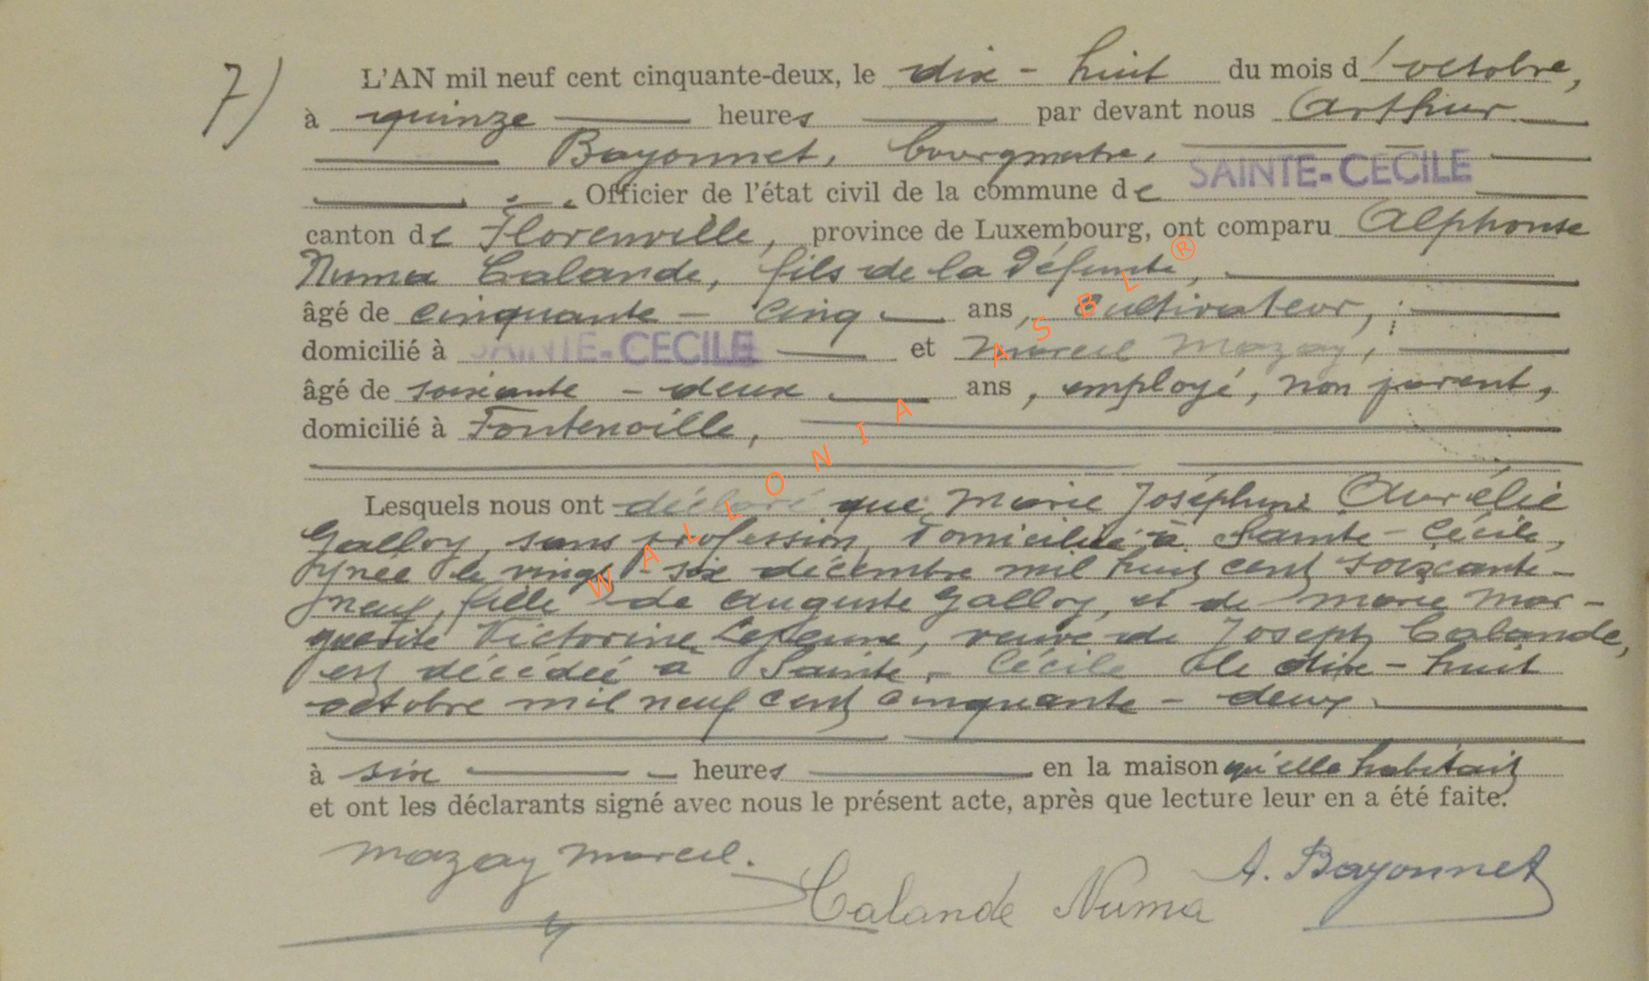 7) L'AN mil neuf cent cinquante-deux, le dix - huit du mois d'octobre,
à quinze heures par devant nous Arthur
Bayonnet, bourgmestre,
Officier de l'état civil de la commune de SAINTE-CECILE
canton de Florenville, province de Luxembourg, ont comparu Alphonse
Numa Calande, fils de la défunte,
âgé de cinquante - cinq ans, cultivateur,
domicilié à SAINTE-CECILE et Marcel Mazay,
âgé de soixante - deux ans, employé, non parent,
domicilié à Fontenoille,
Lesquels nous ont déclaré que Marie Joséphine Aurélie
Galloy, sans profession, domiciliée à Sainte-Cécile,
née le vingt-six décembre mil huit cent soixante-
neuf, fille de Auguste Galloy, et de Marie Mar-
guerite Victorine Lejeune, veuve de Joseph Calande,
est décédée à Sainte-Cécile le dix-huit
octobre mil neuf cent cinquante - deux
à six heures en la maison qu'elle habitait
et ont les déclarants signé avec nous le présent acte, après que lecture leur en a été faite.
Mazay Marcel.
Calande Numa
A. Bayonnet
WALLONIA ASBL ®